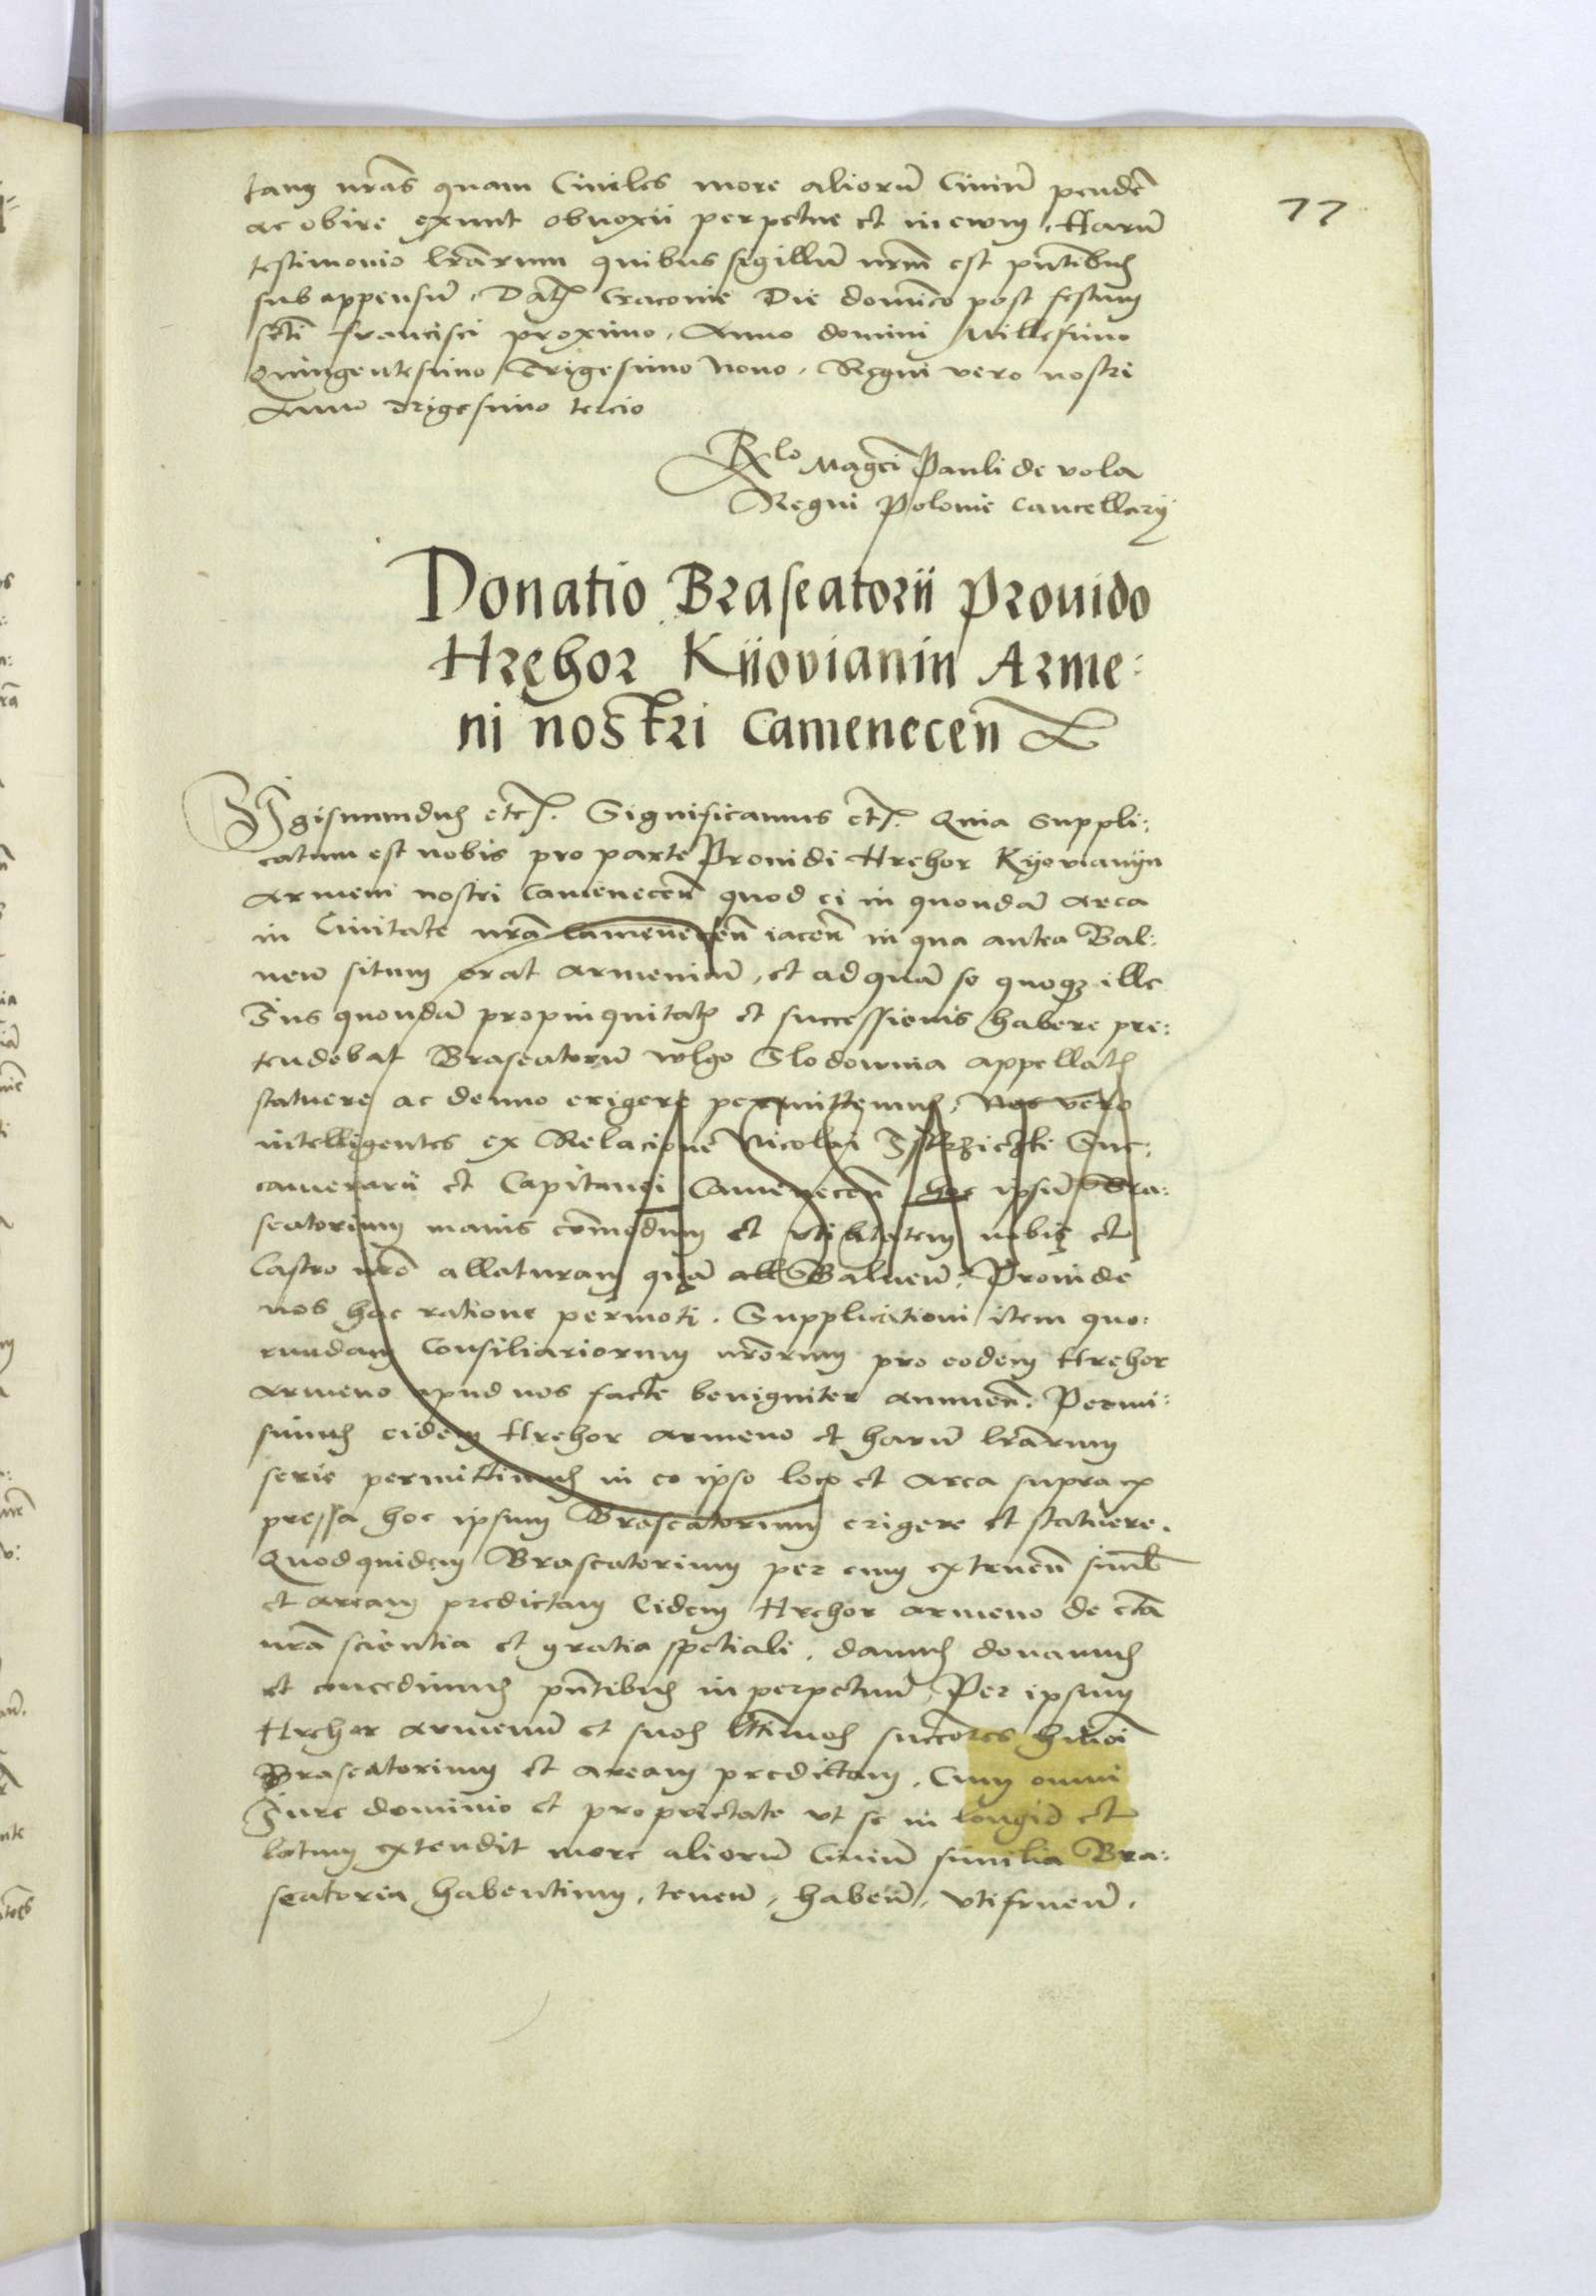 77
tam nrās quam Ciuiles more aliorū Ciuiū pendē
ac obire erunt obnoxii perpetue et in ewm, Harū
testimonio lrārum quibus sigillū nrm̄ est pn̄tibus
subappensū, Dat Cracovie Die domīco post festum
scti francisci proximo, Anno domini Millesimo
Quingentesimo Trigesimo Nono, Regni vero nostri
Anno Trigesimo tercio
Rlo Magci Pauli de vola
Regni Polonie Cancellarij
Donatio Braseatorii Prouido
Hrehor Kiiovianin Arme:
ni nostri Camenecen̄
Sigismundus etc. Significamus etc. Quia suppli:
catum est nobis pro parte Prouidi Hrehor Kyovianijn
Armeni nostri Camenecen̄ quod ei in quondā area
in Ciuitate nrā Camenecen̄ iacen̄ in qua antea Bal:
neū situm erat Armenicū, et ad quā se quoque ille
Jus quondā propinquitatis et successionis habere pre:
tendebat Braseatoriū vulgo Slodownia appellat
statuere ac denuo erigere permittemus, Nos vero
intelligentes ex Relacione Nicolai Suc:
camerarii et Capitanei Camenecen̄ hoc ipsū Bra:
seatorium maius com̄odum et vtilitatem nobis et
Castro nrō allaturam quā Balneū, Proinde
nos hac ratione permoti. Supplicationi item quo:
rundam Consiliariorum nrōrum pro eodem Hrehor
Armeno apud nos facte benigniter annuen̄. Permi:
simus eidem Hrehor Armeno et harū lrārum
serie permittimus in eo ipso loco et area supra ex
pressa hoc ipsum Braseatorium erigere et statuere.
Quod quidem Braseatorium per eum extruen̄ siml
et aream predictam Eidem Hrehor Armeno de ctā
nrā scientia et gratia spetiali, damus donamus
et concedimus pn̄tibus in perpetuū, Per ipsum
Hrehor Armenū et suos lttimos succores hmōi
Braseatorium et aream predictam, Cum omni
Jure dominio et proprietate vt se in longū et
latum extendit more aliorū Ciuiū similia Bra:
seatoria habentium, tenen̄, haben̄, vtifruen̄,